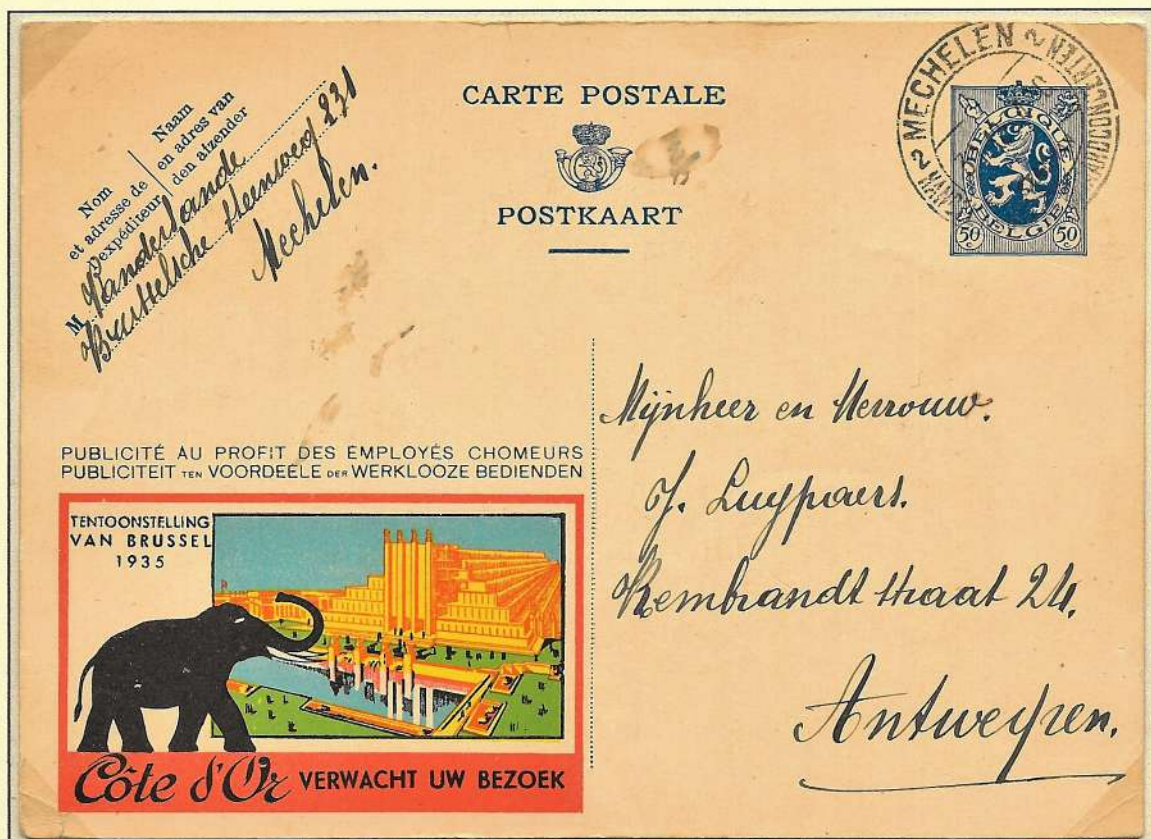 CARTE POSTALE
POSTKAART
Nom
et adresse de
l'expéditeur
Naam
en adres van
den afzender
M Vanderlande
Brusselsche steenweg 231
Mechelen.
2 MECHELEN 2
BELGIQUE
BELGIE
50 c 50 c
PUBLICITÉ AU PROFIT DES EMPLOYÉS CHOMEURS
PUBLICITEIT TEN VOORDEELE DER WERKLOOZE BEDIENDEN
TENTOONSTELLING
VAN BRUSSEL
1935
Côte d'Or VERWACHT UW BEZOEK
Mijnheer en Mevrouw.
J. Luypaers.
Rembrandt straat 24.
Antwerpen.